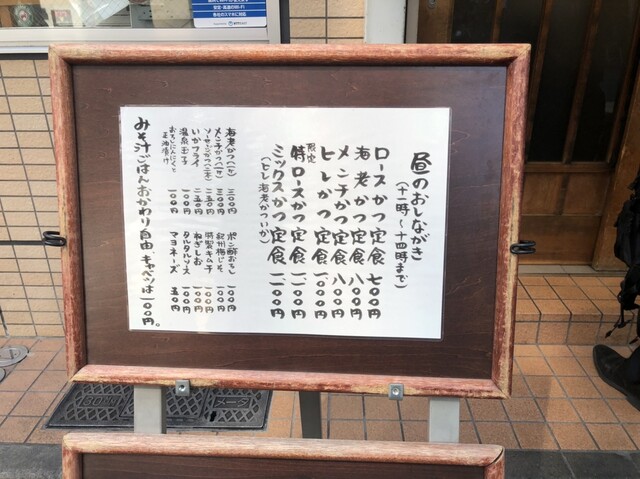 昼のおしながき
(十一時〜十四時まで)
ロースかつ定食 七〇〇円
海老かつ定食 八〇〇円
メンチかつ定食 八〇〇円
ヒレかつ定食 一〇〇〇円
限定 特ロースかつ定食 一二〇〇円
ミックスかつ定食 一二〇〇円
(ヒレ海老かついか)
海老かつ(一ケ) 三〇〇円
メンチかつ(一ケ) 三〇〇円
ソーセージかつ(一本) 二五〇円
いかフライ 二五〇円
温泉玉子 一〇〇円
おろしにんにくと正油漬け 一〇〇円
ポン酢おろし 一〇〇円
紀州梅じそ 一〇〇円
特製キムチ 一〇〇円
ねぎしお 一〇〇円
タルタルソース 一〇〇円
マヨネーズ 五〇円
みそ汁ごはんおかわり自由、キャベツは一〇〇円。